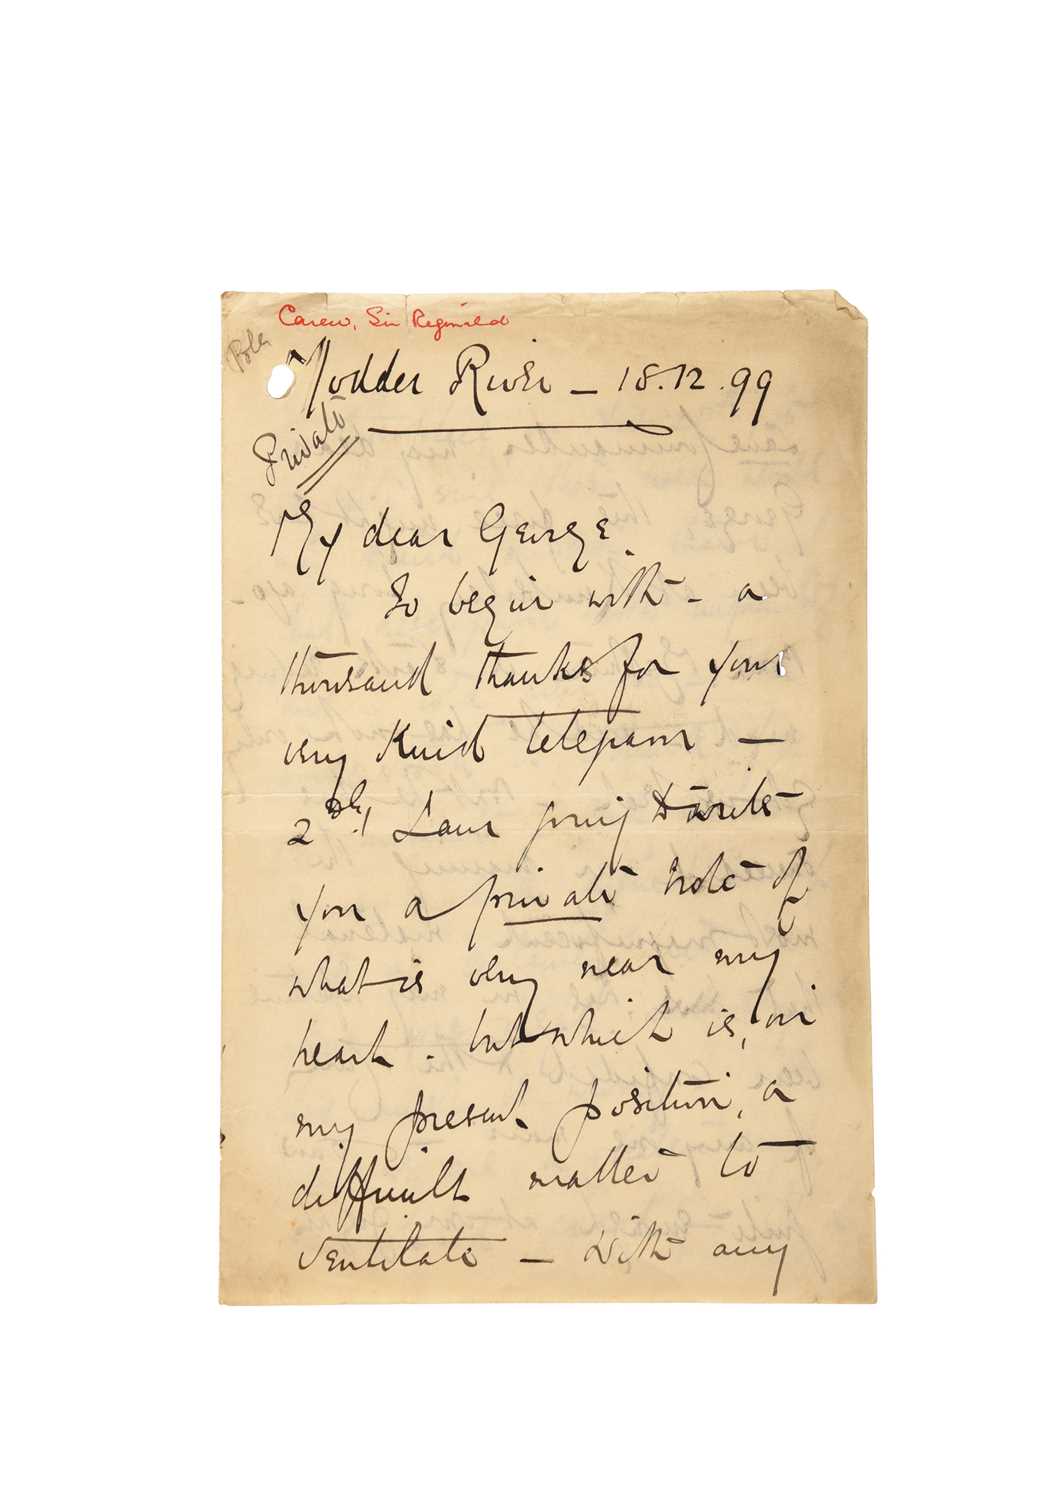 Carew, Sir Reginald
Pole
Modder River – 18.12.99
Private
My dear George.
To begin with – a
thousand thanks for your
very kind telegram –
2ndly! I am going to write
you a private note of
what is very near my
heart. but which is, in
my present position, a
difficult matter to
ventilate – with any